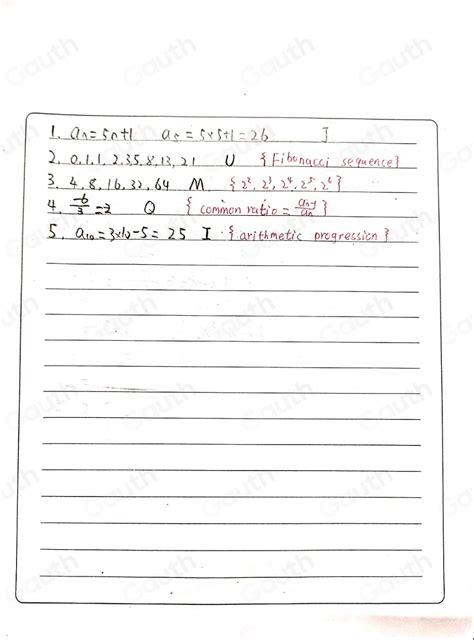 1. aₙ=5n+1 a₅=5×5+1=26 J
2. 0.1.1.2.3.5.8.13.21 U {Fibonacci sequence}
3. 4.8.16.32.64 M. {2² 2³ 2⁴ 2⁵ 2⁶}
4. -6/3=-2 Q {common ratio = aₙ₊₁/aₙ}
5. a₁₀=3×10-5=25 I {arithmetic progression}